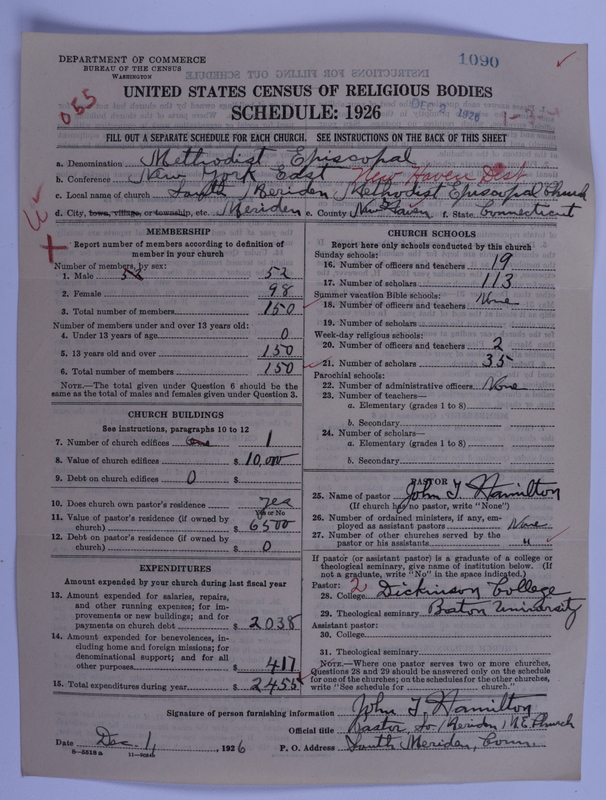 DEPARTMENT OF COMMERCE
BUREAU OF THE CENSUS
WASHINGTON
1090
055
UNITED STATES CENSUS OF RELIGIOUS BODIES
SCHEDULE: 1926
DEC 2 1926
FILL OUT A SEPARATE SCHEDULE FOR EACH CHURCH. SEE INSTRUCTIONS ON THE BACK OF THIS SHEET
a. Denomination Methodist Episcopal
b. Conference New York East New Haven Dist
c. Local name of church South Meriden Methodist Episcopal Church
d. City, town, village, or township, etc. Meriden e. County New Haven f. State Connecticut
MEMBERSHIP
Report number of members according to definition of
member in your church
Number of members, by sex:
1. Male 52 52
2. Female 98
3. Total number of members 150
Number of members under and over 13 years old:
4. Under 13 years of age 0
5. 13 years old and over 150
6. Total number of members 150
NOTE.—The total given under Question 6 should be the
same as the total of males and females given under Question 3.
CHURCH BUILDINGS
See instructions, paragraphs 10 to 12
7. Number of church edifices one 1
8. Value of church edifices $ 10,000
9. Debt on church edifices 0 $
10. Does church own pastor's residence yes
Yes or No
11. Value of pastor's residence (if owned by
church) $ 6500
12. Debt on pastor's residence (if owned by
church) $ 0
EXPENDITURES
Amount expended by your church during last fiscal year
13. Amount expended for salaries, repairs,
and other running expenses; for im-
provements or new buildings; and for
payments on church debt $ 2038
14. Amount expended for benevolences, in-
cluding home and foreign missions; for
denominational support; and for all
other purposes $ 417
15. Total expenditures during year $ 2455
CHURCH SCHOOLS
Report here only schools conducted by this church
Sunday schools:
16. Number of officers and teachers 19
17. Number of scholars 113
Summer vacation Bible schools:
18. Number of officers and teachers None
19. Number of scholars
Week-day religious schools:
20. Number of officers and teachers 2
21. Number of scholars 35
Parochial schools:
22. Number of administrative officers None
23. Number of teachers—
a. Elementary (grades 1 to 8)
b. Secondary
24. Number of scholars—
a. Elementary (grades 1 to 8)
b. Secondary
PASTOR
25. Name of pastor John T. Hamilton
(If church has no pastor, write "None")
26. Number of ordained ministers, if any, em-
ployed as assistant pastors None
27. Number of other churches served by the
pastor or his assistants "
If pastor (or assistant pastor) is a graduate of a college or
theological seminary, give name of institution below. (If
not a graduate, write "No" in the space indicated.)
Pastor: 2
28. College Dickinson College
29. Theological seminary Boston University
Assistant pastor:
30. College
31. Theological seminary
NOTE.—Where one pastor serves two or more churches,
Questions 28 and 29 should be answered only on the schedule
for one of the churches; on the schedules for the other churches,
write "See schedule for church."
Signature of person furnishing information John T. Hamilton
Official title Pastor So. Meriden M.E. Church
Date Dec. 1, 1926 P. O. Address South Meriden, Conn.
8—5518 a